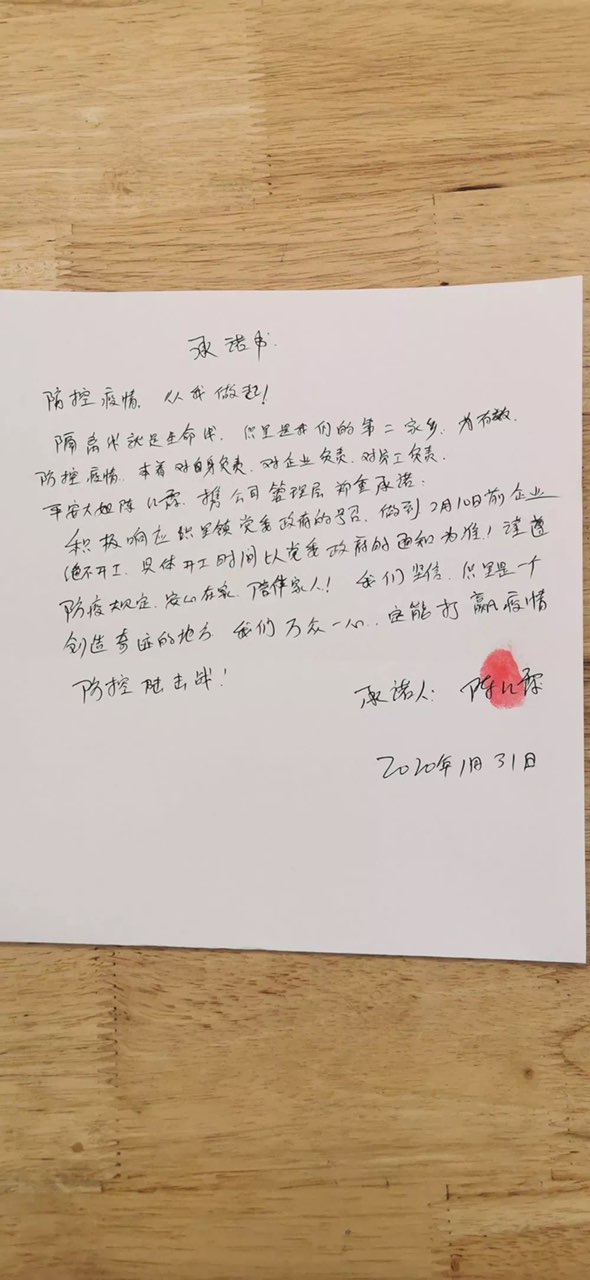 承诺书.
防控疫情. 从我做起!
隔离衣就是生命线. 织里是我们的第二家乡. 为有效.
防控疫情. 本着对自身负责. 对企业负责. 对员工负责.
平安大姐陈 霖. 携公司管理层郑重承诺:
积极响应织里镇党委政府的号召. 做到2月10日前企业
绝不开工. 具体开工时间以党委政府的通知为准! 谨遵
防疫规定. 安心在家. 陪伴家人! 我们坚信. 织里是一个
创造奇迹的地方 我们万众一心.. 定能打赢疫情
防控阻击战!
承诺人: 陈 霖
2020年1月31日